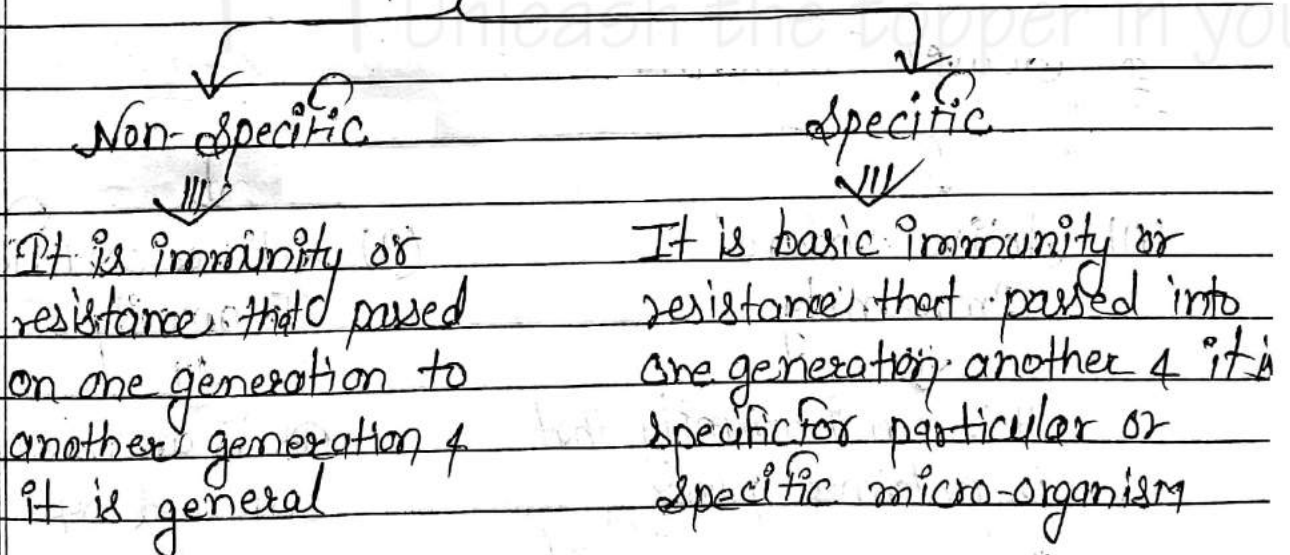 Unleash the topper in you
Non-Specific
Specific
It is immunity or
resistance that passed
on one generation to
another generation &
it is general
It is basic immunity or
resistance that passed into
one generation another & it is
specific for particular or
specific micro-organism